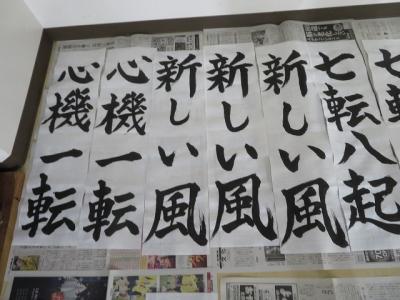 七転
七転八起
新しい風
新しい風
新しい風
心機一転
心機一転